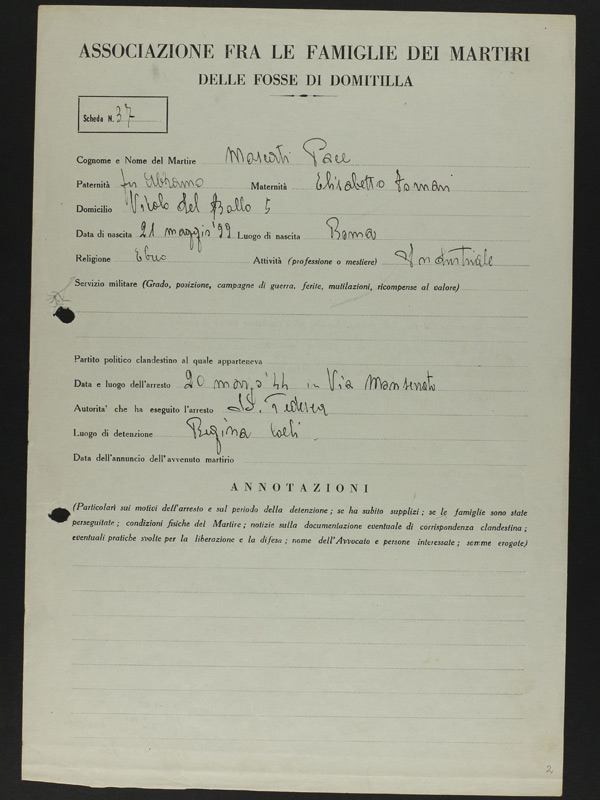 ASSOCIAZIONE FRA LE FAMIGLIE DEI MARTIRI
DELLE FOSSE DI DOMITILLA
Scheda N. 37
Cognome e Nome del Martire Moscati Pace
Paternità fu Abramo Maternità Elisabetta Fornari
Domicilio Vicolo del Bollo 5
Data di nascita 21 maggio '99 Luogo di nascita Roma
Religione Ebreo Attività (professione o mestiere) Industriale
Servizio militare (Grado, posizione, campagne di guerra, ferite, mutilazioni, ricompense al valore)
Partito politico clandestino al quale apparteneva
Data e luogo dell'arresto 20 marzo '44 in Via Monserrato
Autorita' che ha eseguito l'arresto
Luogo di detenzione Regina Coeli
Data dell'annuncio dell'avvenuto martirio
ANNOTAZIONI
(Particolari sui motivi dell'arresto e sul periodo della detenzione; se ha subito supplizi; se le famiglie sono state
perseguitate; condizioni fisiche del Martire; notizie sulla documentazione eventuale di corrispondenza clandestina;
eventuali pratiche svolte per la liberazione e la difesa; nome dell'Avvocato e persone interessate; somme erogate)
2